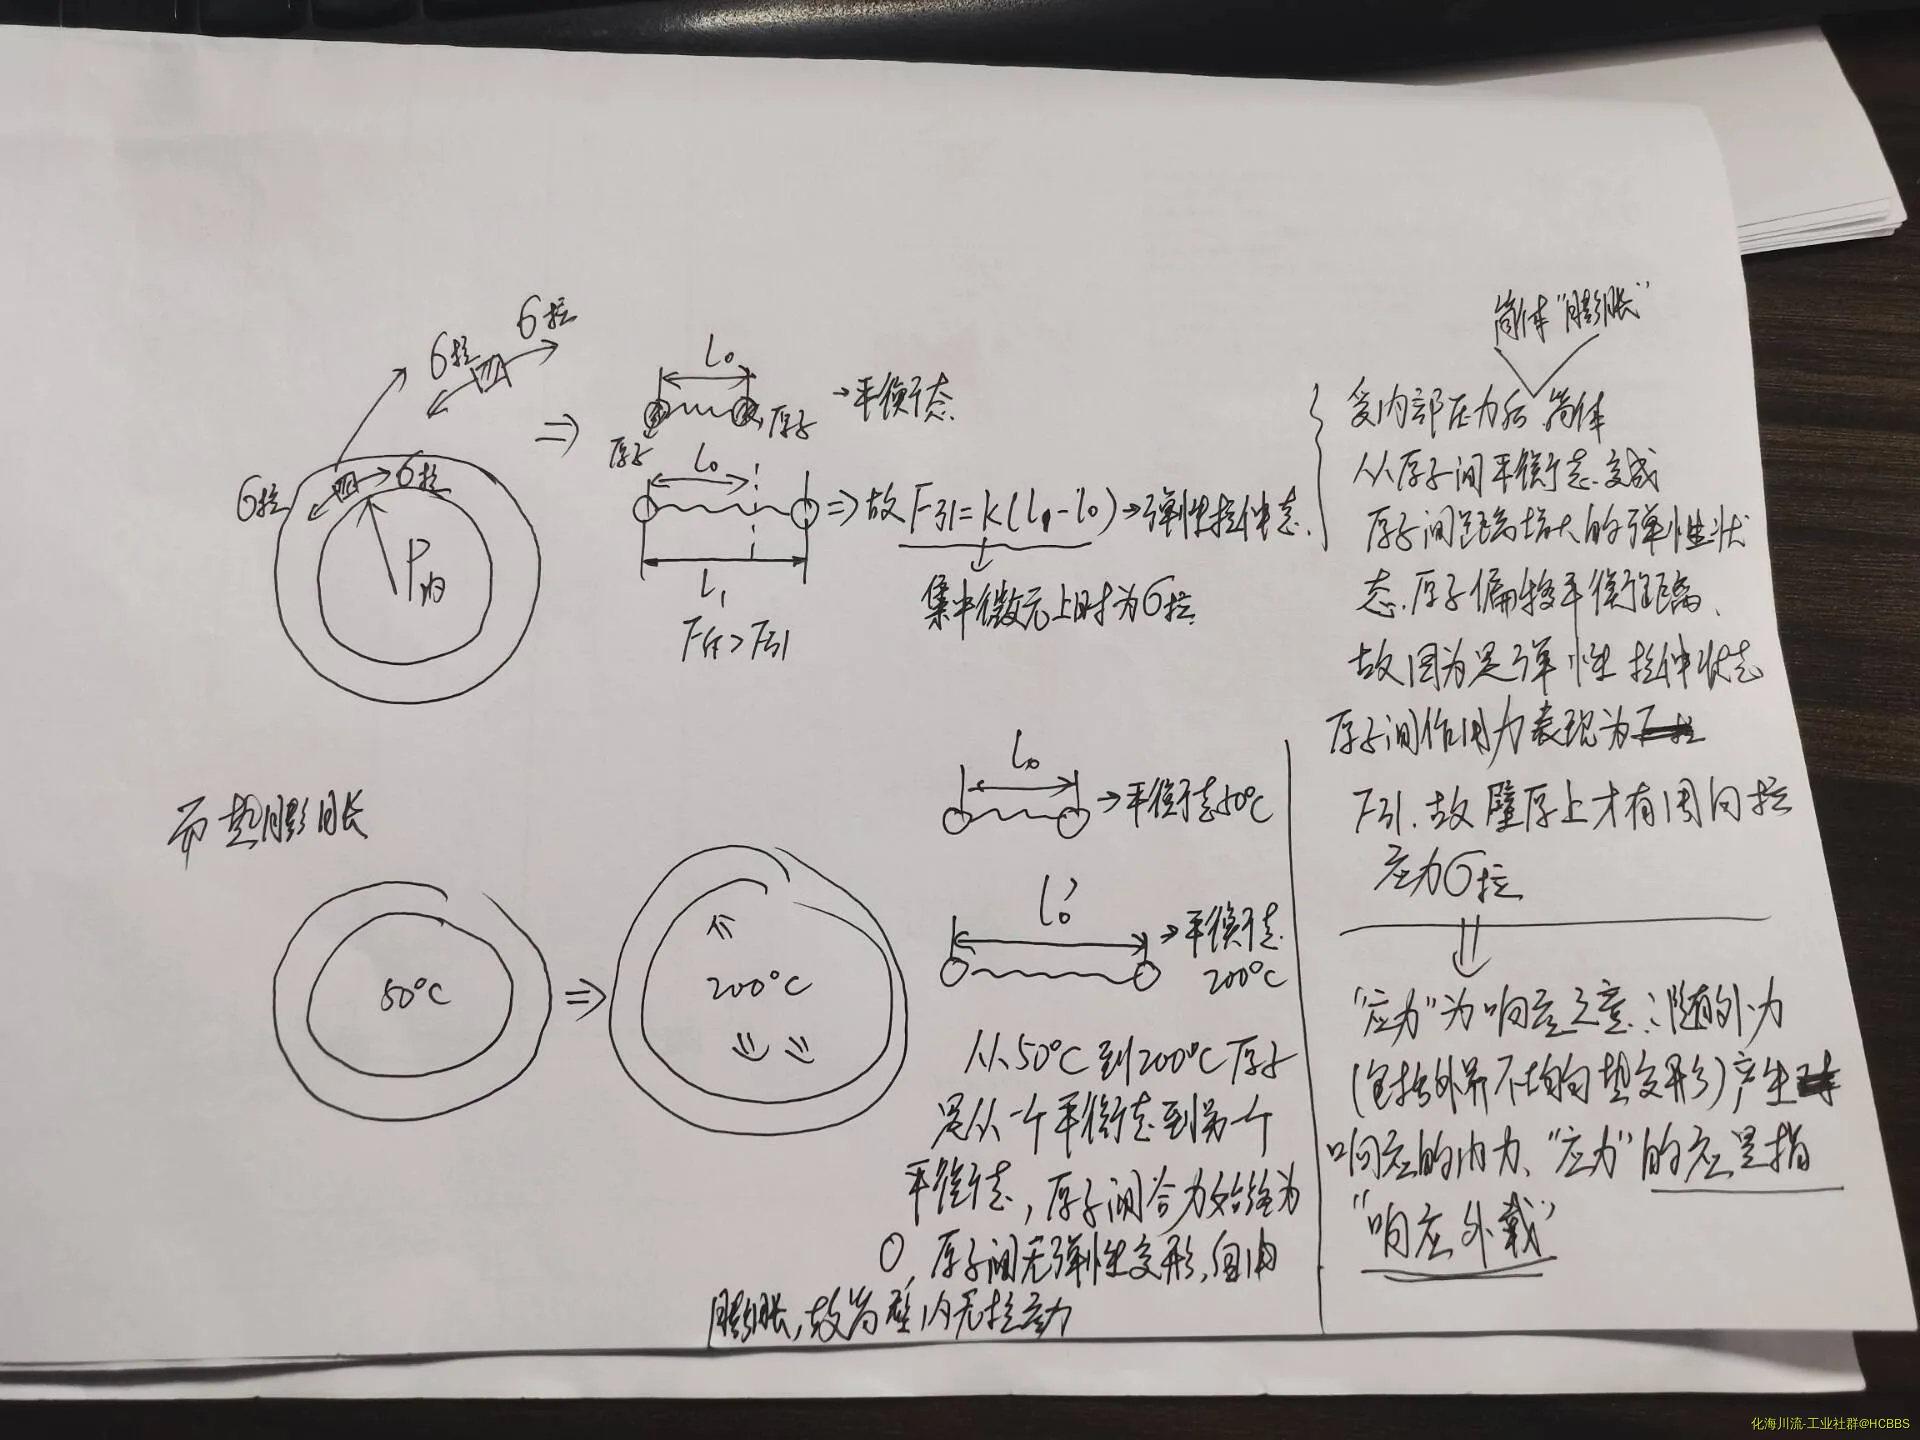 σ拉
σ拉
σ拉
σ拉
P内
⇒
l₀
→平衡态
原子
原子
l₀
l₁
F外>F引
⇒故F引=k(l₁-l₀)→弹性拉伸态.
集中微元上时为σ拉
筒体"膨胀"
受内部压力后.筒体
从原子间平衡态.变成
原子间距离增大的弹性状
态.原子偏移平衡距离、
故因为是弹性拉伸状态
原子间作用力表现为
F引.故壁厚上才有周向拉
应力σ拉
"应力"为响应之意.:随外力
(包括外界不均匀热变形)产生
响应的内力、"应力"的应是指
"响应外载"
而热膨胀
50°C
⇒
200°C
l₀
→平衡态50°C
l₀'
→平衡态
200°C
从50°C到200°C原子
是从一个平衡态到另一个
平衡态,原子间合力始终为
0,原子间无弹性变形,自由
膨胀,故筒壁内无拉应力
化海川流-工业社群@HCBBS